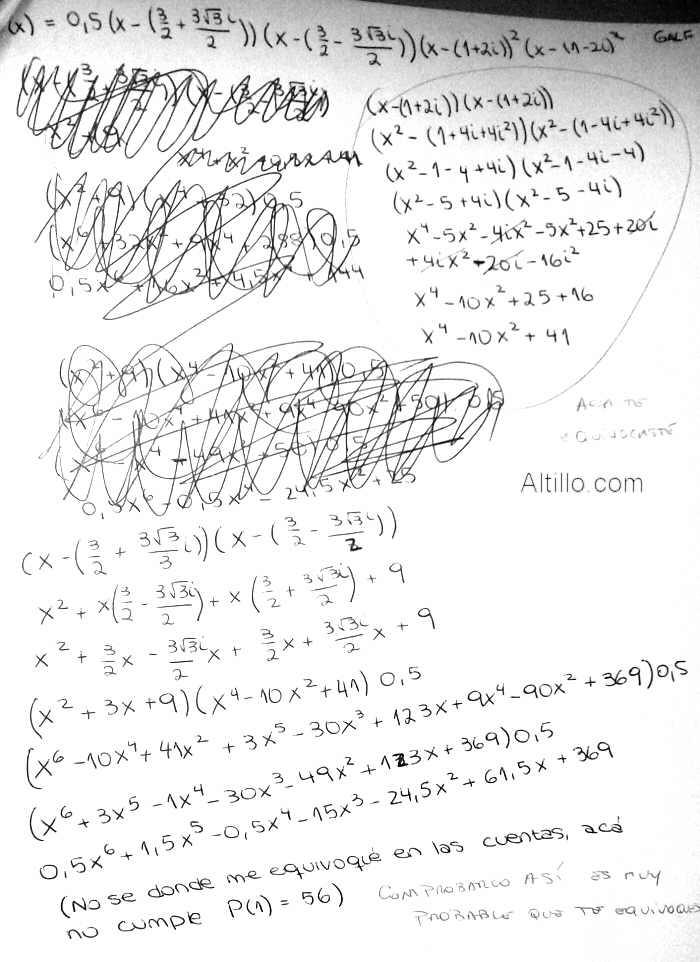 (x) = 0,5(x-(3/2 + 3√3i/2))(x-(3/2 - 3√3i/2))(x-(1+2i))²(x-(1-2i)²
GALF
(x-(1+2i))(x-(1+2i))
(x²-(1+4i+4i²))(x²-(1-4i+4i²))
(x²-1-4+4i)(x²-1-4i-4)
(x²-5+4i)(x²-5-4i)
x⁴-5x²-4ix²-5x²+25+20i
+4ix²-20i-16i²
x⁴-10x²+25+16
x⁴-10x²+41
(x²+9)(x⁴-10x²+41)0,5
0,5x⁶-0,5x⁴-24,5x²+25
ACA TE
EQUIVOCASTE
Altillo.com
(x-(3/2 + 3√3/3 i))(x-(3/2 - 3√3i/2))
x² + x(3/2 - 3√3i/2) + x(3/2 + 3√3i/2) + 9
x² + 3/2x - 3√3i/2x + 3/2x + 3√3i/2x + 9
(x²+3x+9)(x⁴-10x²+41)0,5
(x⁶-10x⁴+41x²+3x⁵-30x³+123x+9x⁴-90x²+369)0,5
(x⁶+3x⁵-1x⁴-30x³-49x²+123x+369)0,5
0,5x⁶+1,5x⁵-0,5x⁴-15x³-24,5x²+61,5x+369
(No se donde me equivoqué en las cuentas, acá
no cumple P(1) = 56)
COMPROBARLO ASÍ ES MUY
PROBABLE QUE TE EQUIVOQUES